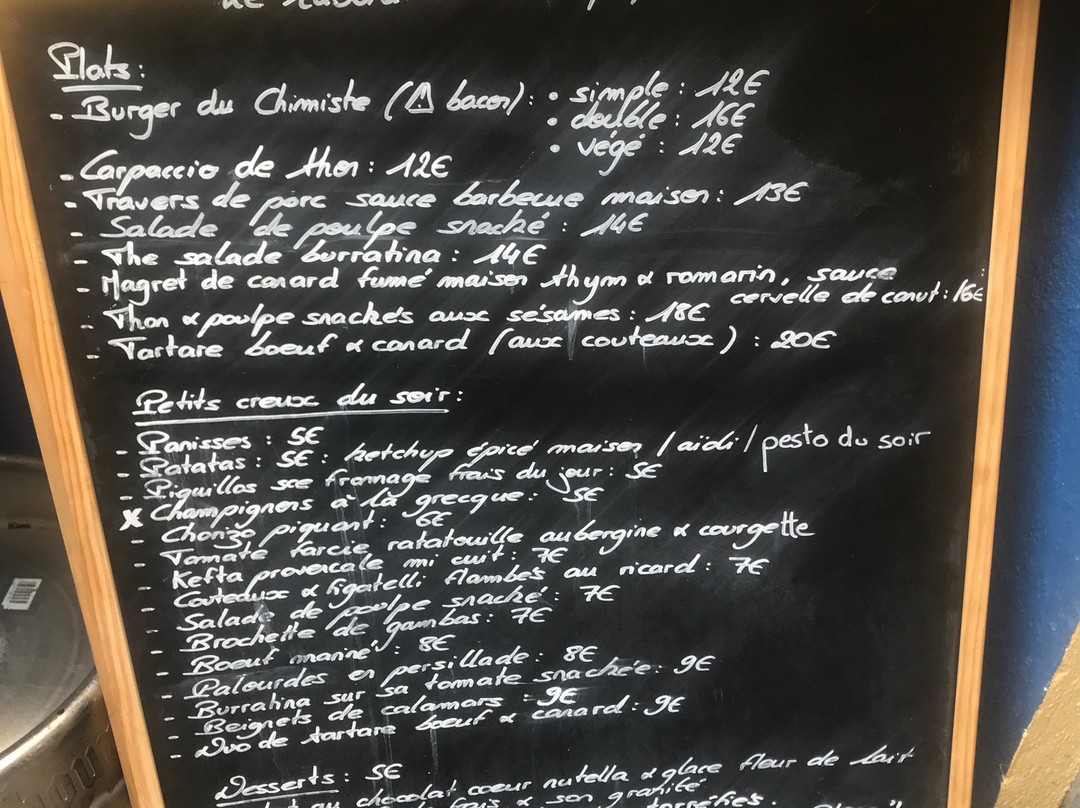 Plats:
- Burger du Chimiste (⚠ bacon): • simple : 12€
• double : 16€
• végé : 12€
- Carpaccio de thon : 12€
- Travers de porc sauce barbecue maison : 13€
- Salade de poulpe snacké : 14€
- The salade burratina : 14€
- Magret de canard fumé maison thym & romarin, sauce
cervelle de canut : 16€
- Thon & poulpe snackés aux sésames : 18€
- Tartare boeuf & canard (aux couteaux) : 20€
Petits creux du soir :
- Panisses : 5€
- Patatas : 5€ : ketchup épicé maison / aïoli / pesto du soir
- Piquillos sce fromage frais du jour : 5€
x Champignons à la grecque : 5€
- Chorizo piquant : 6€
- Tomate farcie ratatouille aubergine & courgette
- Kefta provençale mi cuit : 7€
- Couteaux & figatelli flambés au ricard : 7€
- Salade de poulpe snacké : 7€
- Brochette de gambas : 7€
- Boeuf mariné : 8€
- Palourdes en persillade : 8€
- Burratina sur sa tomate snackée : 9€
- Beignets de calamars : 9€
- Duo de tartare boeuf & canard : 9€
Desserts : 5€
au chocolat coeur nutella & glace fleur de lait
& son granité
torréfiés.